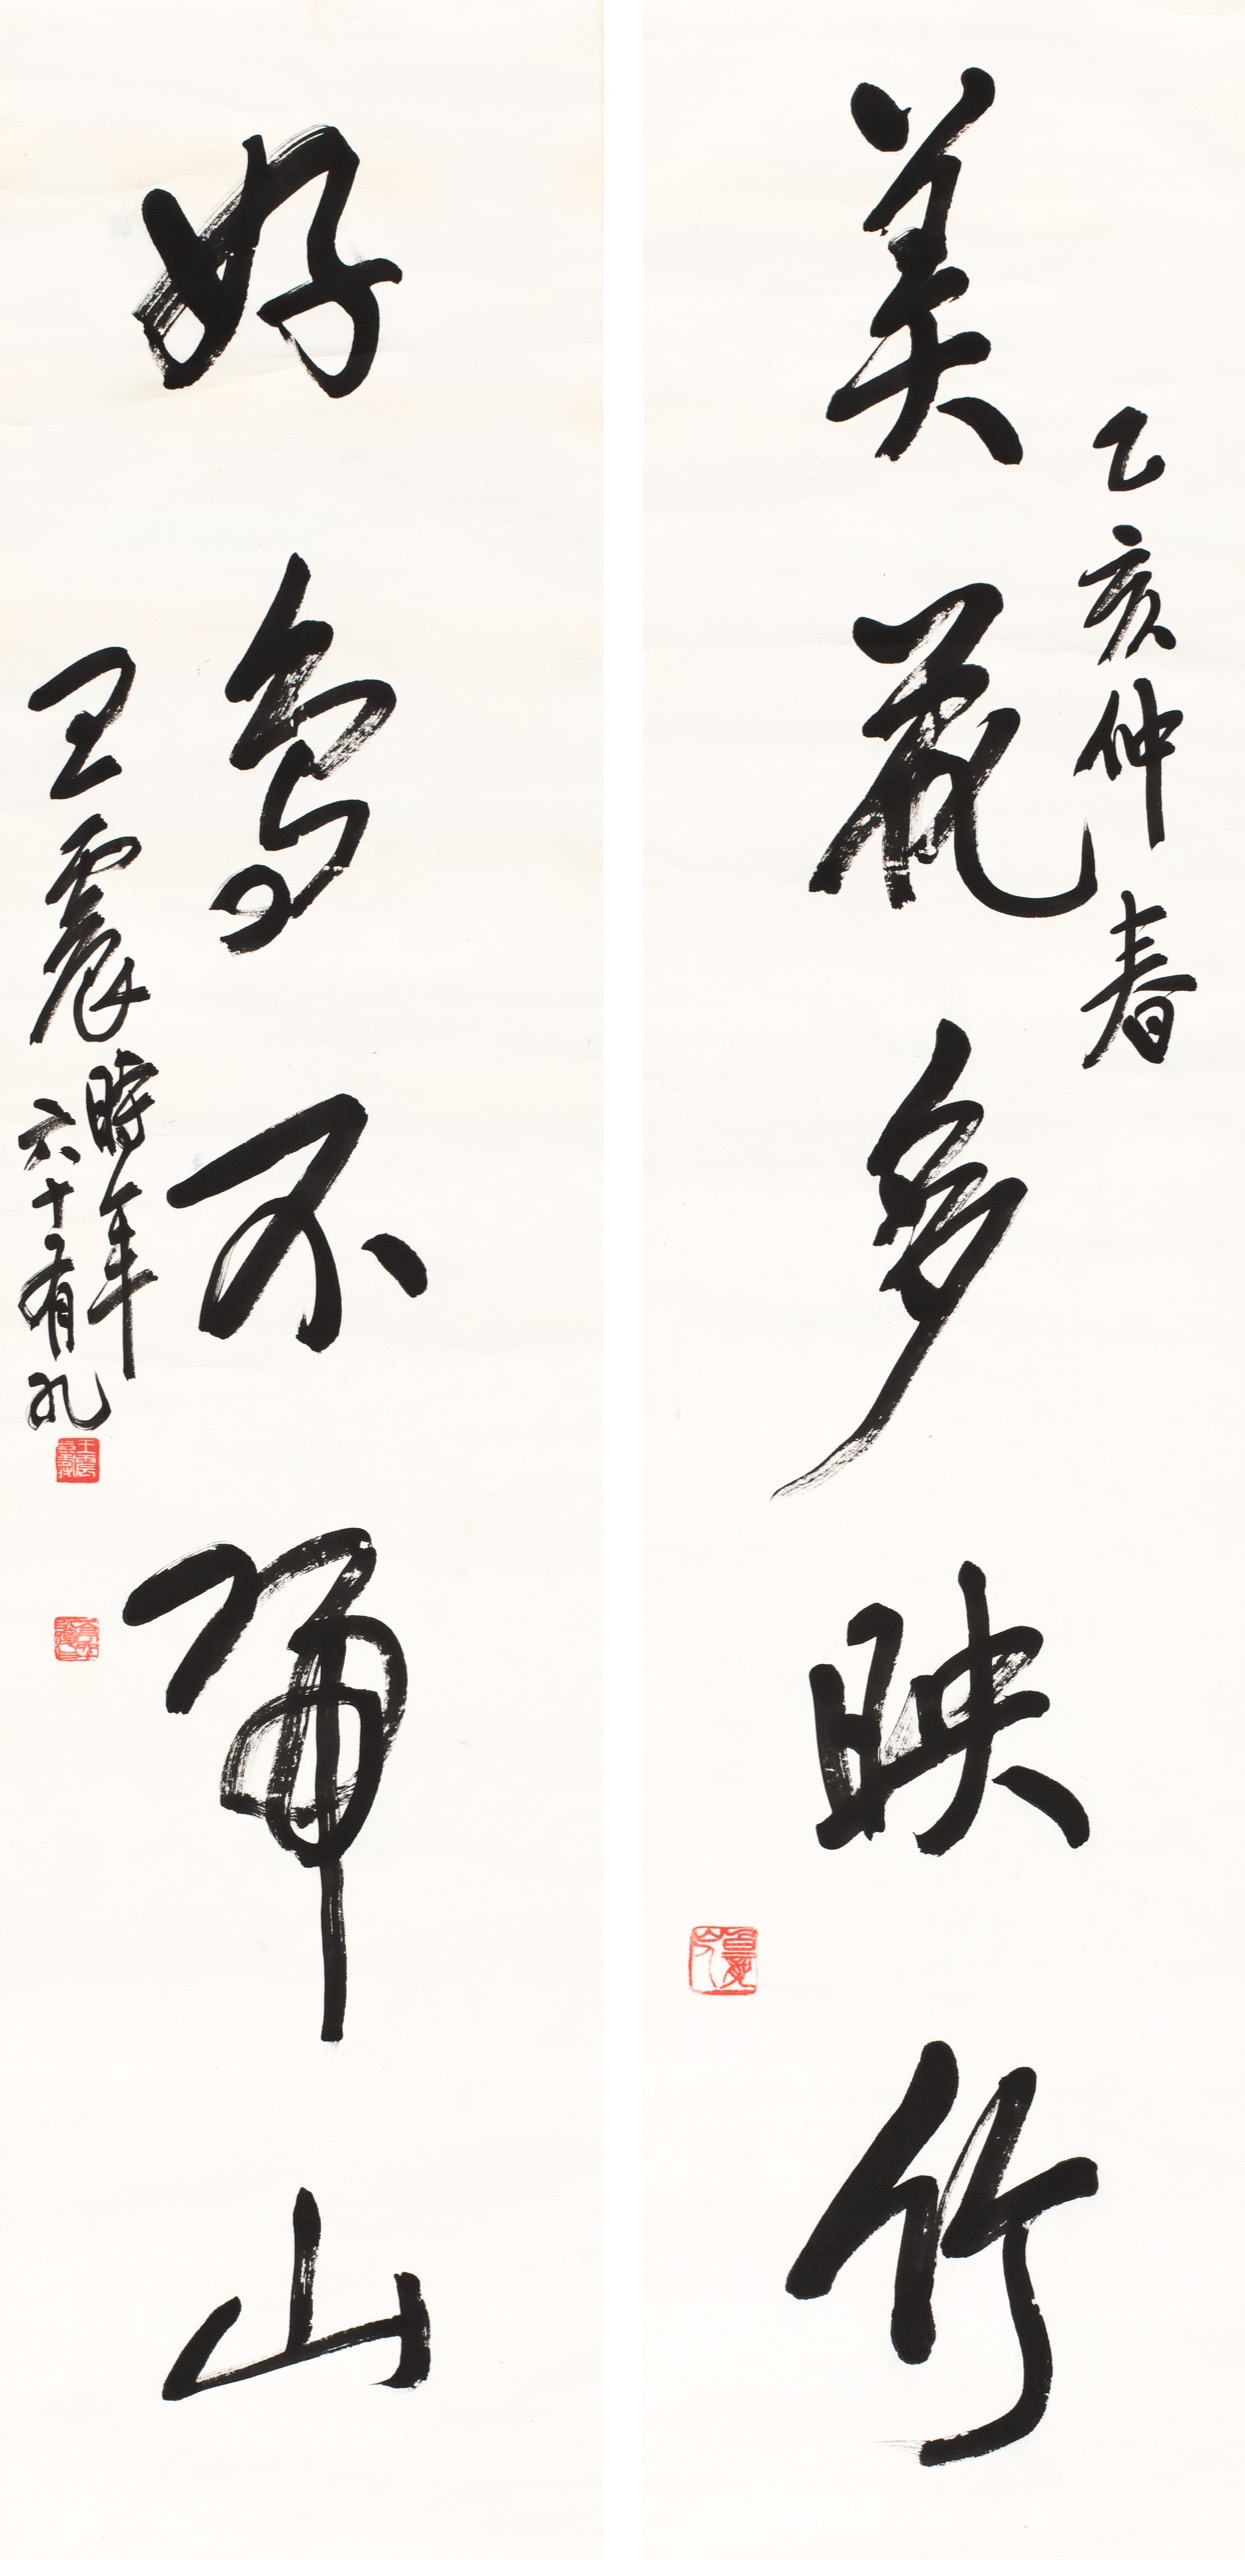 乙亥仲春
美花多映竹
好鳥不歸山
王震
時年
六十有九